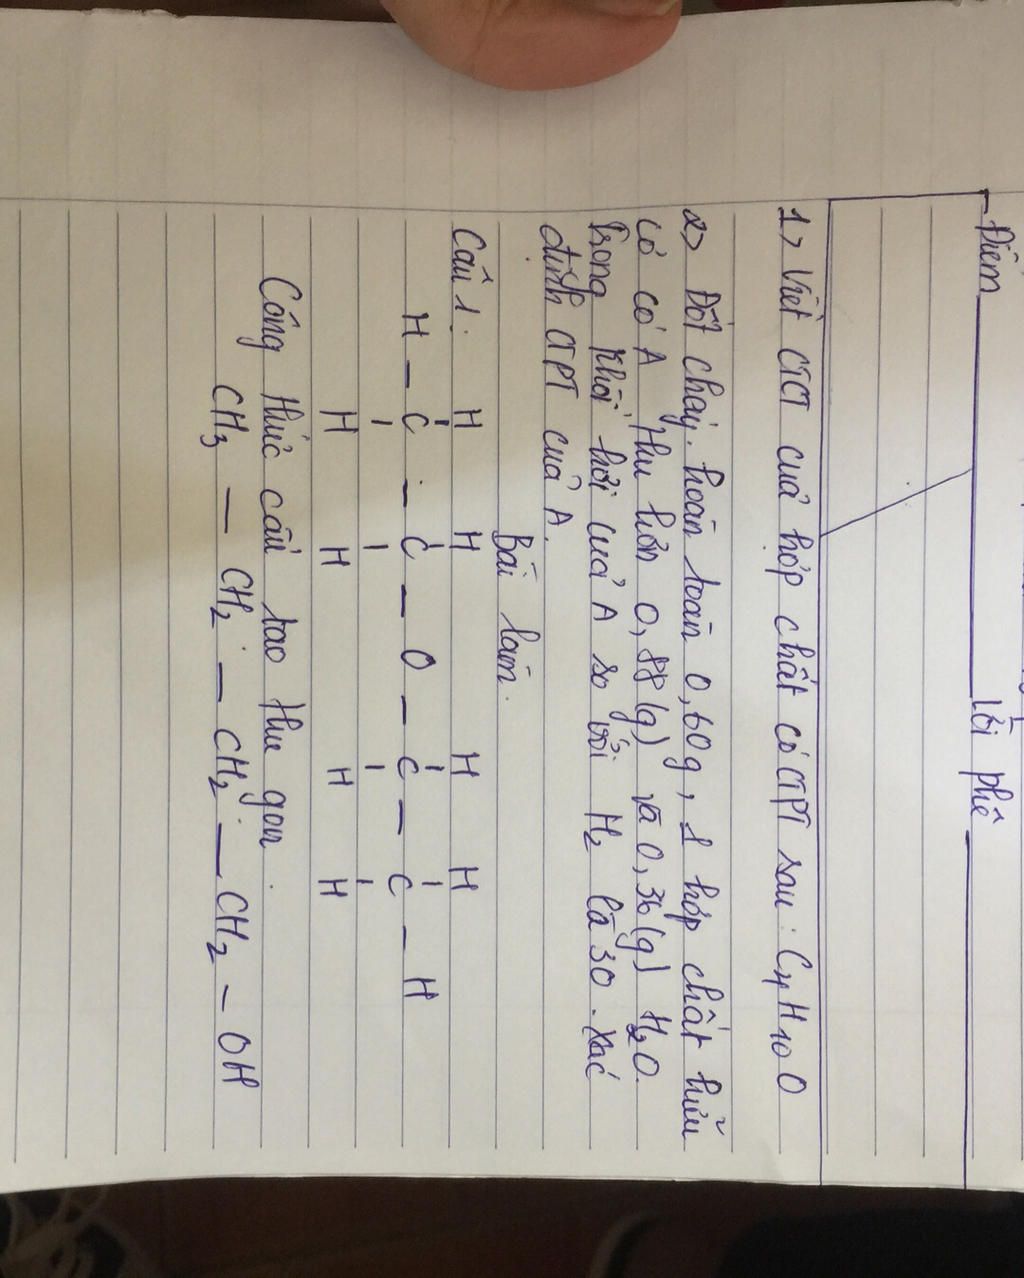 Điểm Lời phê
1> Viết CTCT của hợp chất có CTPT sau : C4H10O
2> Đốt cháy hoàn toàn 0,60g, 1 hợp chất hữu
cơ có A thu hơn 0,88 (g) và 0,36 (g) H2O.
Trong khối hơi của A so với H2 là 30. Xác
định CTPT của A.
Bài làm.
Câu 1: H H H H
H - C - C - O - C - C - H
H H H H
Công thức cấu tạo thu gọn.
CH3 - CH2 - CH2 - CH2 - OH